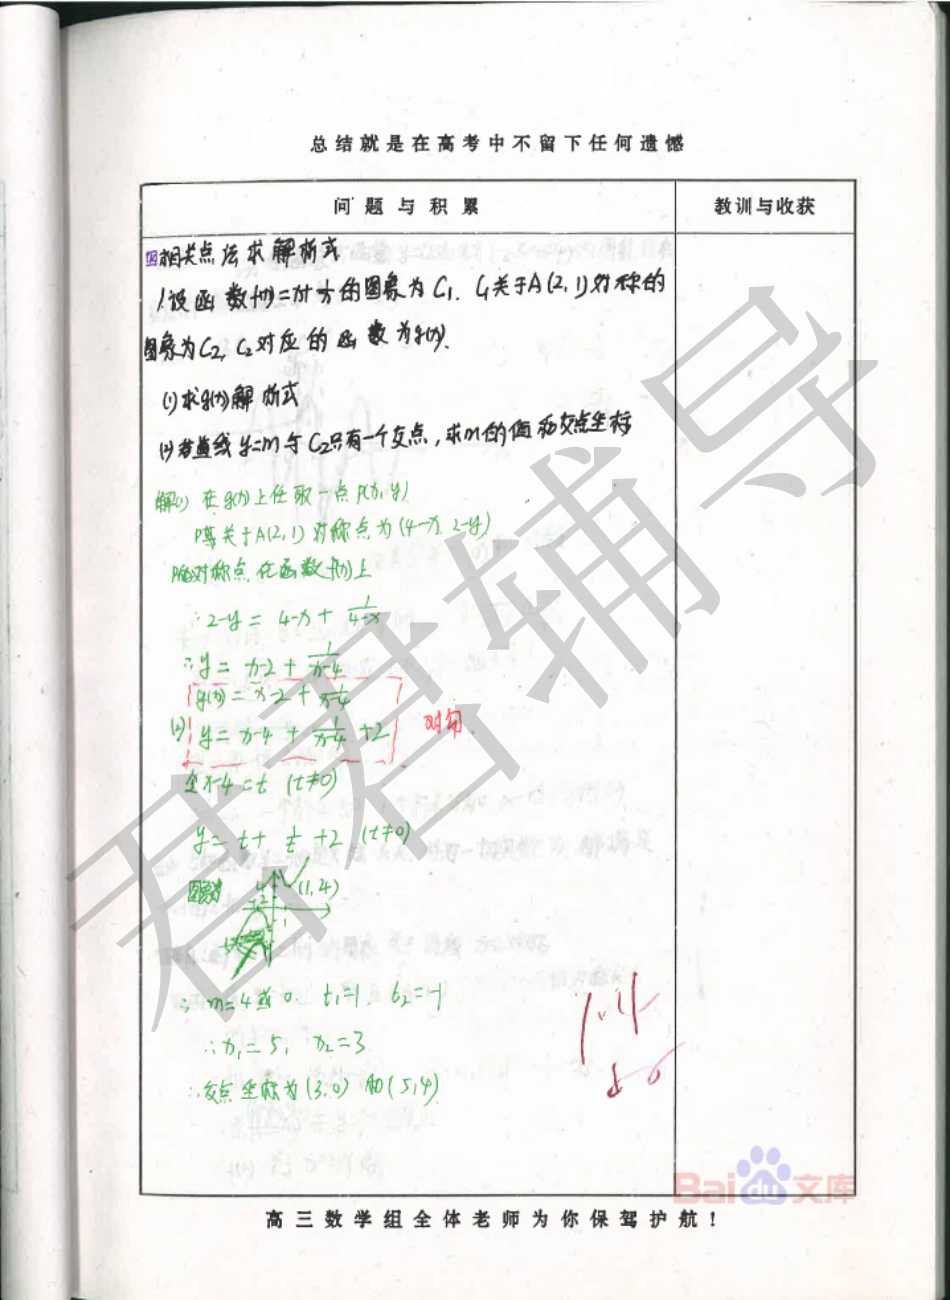 总结就是在高考中不留下任何遗憾
问题与积累
教训与收获
四相关点法求解析式
1.设函数f(x)=x+1/x的图象为C1. C1关于A(2,1)对称的
图象为C2, C2对应的函数为g(x).
(1)求g(x)解析式
(2)若直线y=m与C2只有一个交点,求m的值和交点坐标
解(1)在g(x)上任取一点P(x,y)
关于A(2,1)对称点为(4-x, 2-y)
对称点在函数f(x)上
∴2-y = 4-x + 1/(4-x)
∴y = x-2 + 1/(x-4)
g(x) = x-2 + 1/(x-4)
(2) y = x-4 + 1/(x-4) +2
对勾
令x-4=t (t≠0)
y = t + 1/t +2 (t≠0)
图象为
(1,4)
∴m=4或0. t1=1, t2=-1
∴x1=5, x2=3
∴交点坐标为(3,0)和(5,4)
君君辅导
Bai du 文库
高三数学组全体老师为你保驾护航!